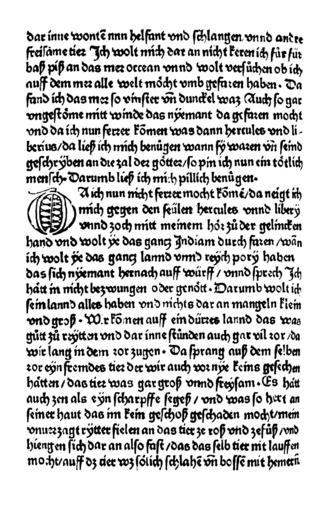 dar inne wonten nnn helfant vnd schlangen vnnd andre
freisame tier Ich wolt mich dar an nicht keren ich für für
baß piß an das mer occean vnnd wolt versůchen ob ich
auff dem mer alle welt möcht vmb gefaren haben · Da
fand ich das mer so vinster vñ dunckel waz Auch so gar
vngestöme mitt winde das nyemant da gefaren mocht
vnd da ich nun ferrer kömen was dann hercules vnd li-
berius/da ließ ich mich benügen wann sy waren vñ seind
geschryben an die zal der götter/so pin ich nun ein tötlich
mensch · Darumb ließ ich mich pillich benügen ·
DA ich nun nicht ferrer mocht kömē/da neigt ich
mich gegen den seülen hercules vnnd libery
vnnd zoch mitt meinem hör zů der gelincken
hand vnd wolt ye das gancz Indiam durch faren/wān
ich wolt ye das gancz lannd vnnd reych pory haben
das sich nyemant hernach auff würff/vnnd sprech Ich
hätt in nicht bezwungen oder genött · Darumb wolt ich
sein lannd alles haben vnd nichts dar an mangeln klein
vnd groß · Wir kömen auff ein dürres lannd das was
gůtt zů reytten vnd dar inne stůnden auch gar vil ror/da
wir lang in dem ror zugen · Da sprang auß dem selben
ror eyn fremdes tier der wir auch vor nye keins gesehen
hätten/das tier was gar groß vnnd freysam · Es hätt
auch zen als eyn scharpffe segeß/vnd was so hert an
seiner haut das im kein geschoß geschaden mocht/mein
vnuerzagt rytter fielen an das tier ze roß vnd ze fůß/vnd
hiengen sich dar an also fast/das das selb tier mit lauffen
mocht/auff dz tier wz sölich schlahē vñ bossē mit hemern